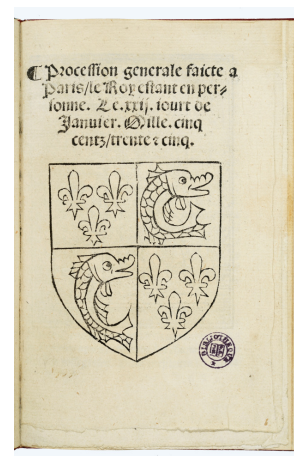 ¶ Procession generale faicte a
Paris/le Roy estant en per-
sonne. Le.xxij. iourt de
Januier. Mille. cinq
centz/trente ⁊ cinq.